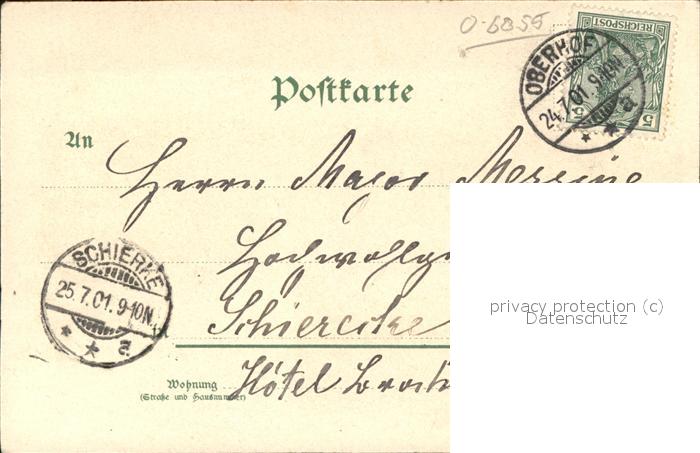 O-6855
REICHSPOST
5 5
OBERHOF
24.7.01.9-10N.
* * a
Postkarte
An
Herrn Major
Hochwollge
Schiercke
Hôtel
SCHIERKE
25.7.01.9-10N.
* * a
in
Wohnung
(Straße und Hausnummer)
privacy protection (c)
Datenschutz